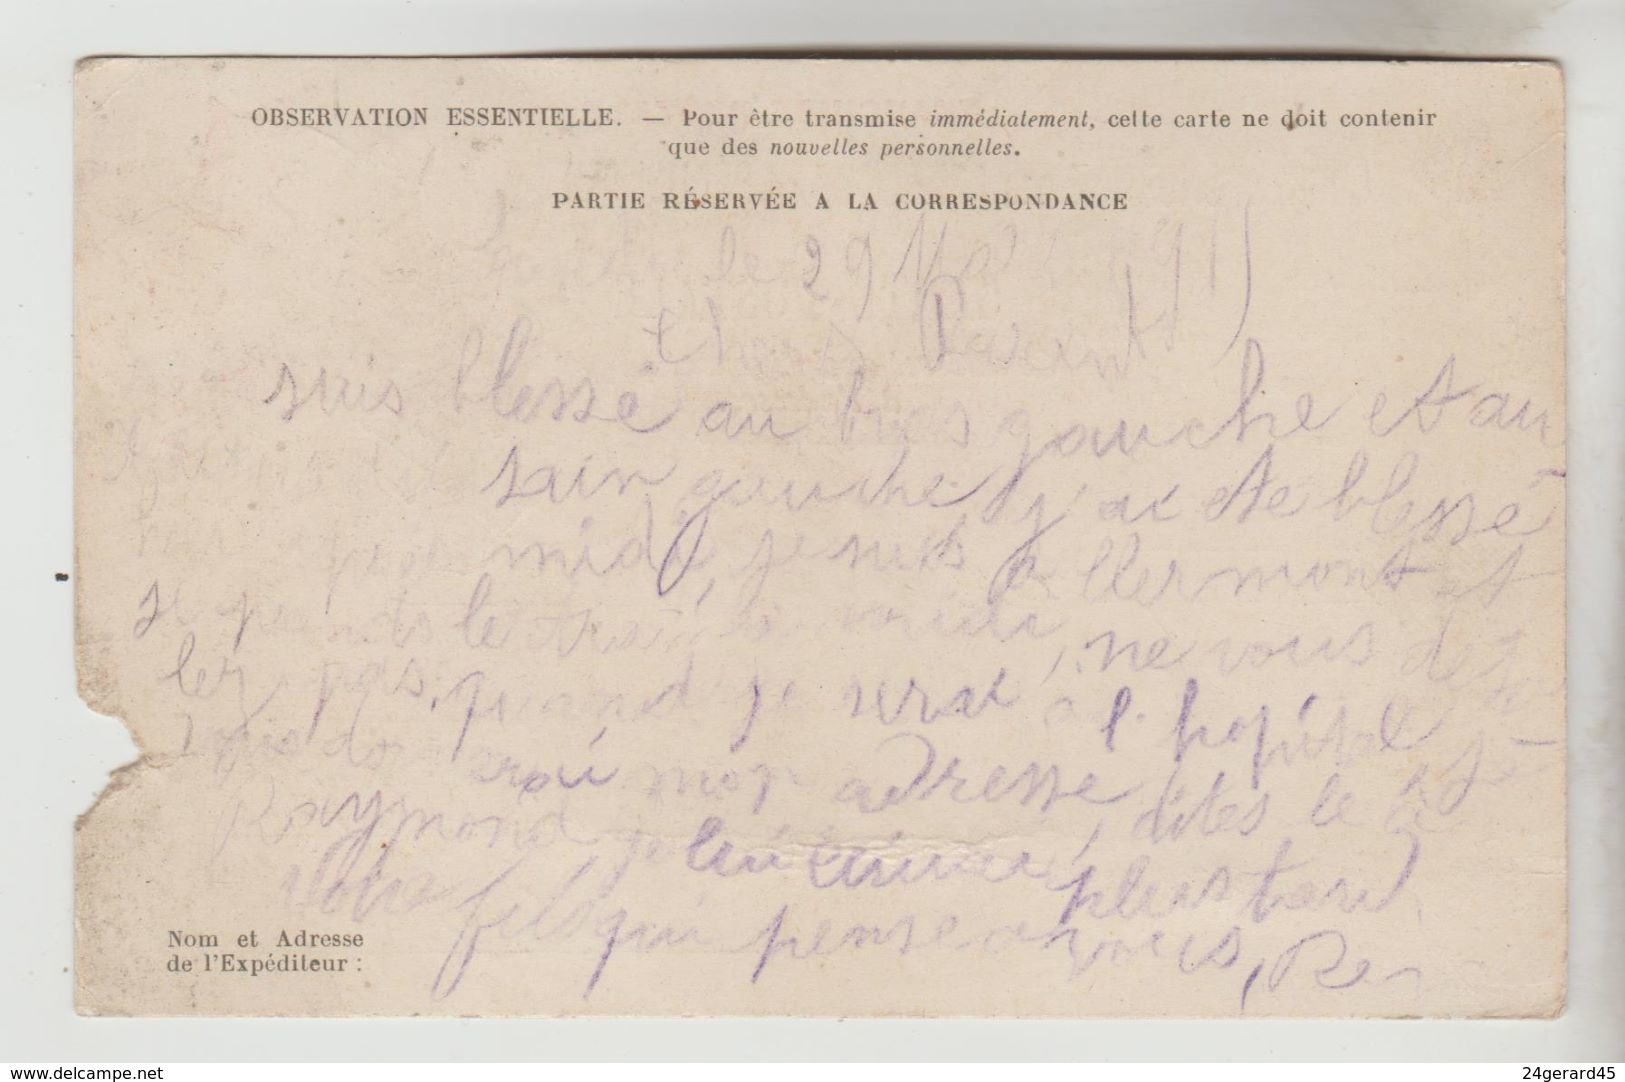 OBSERVATION ESSENTIELLE. — Pour être transmise immédiatement, cette carte ne doit contenir
que des nouvelles personnelles.
PARTIE RÉSERVÉE A LA CORRESPONDANCE
le 29 Mai 1915
Chers Parents
suis blessé au bras gauche et au
sain gauche j'ai ete blessé
midi, je suis a Clermont et
je prends le train a midi, ne vous deso
lez pas, quand je serai a l'hopital je
vous donnerai mon adresse, dites le à
Raymond je lui plus tard
Votre fils qui pense a vous, Re
Nom et Adresse
de l'Expéditeur :
www.delcampe.net
24gerard45